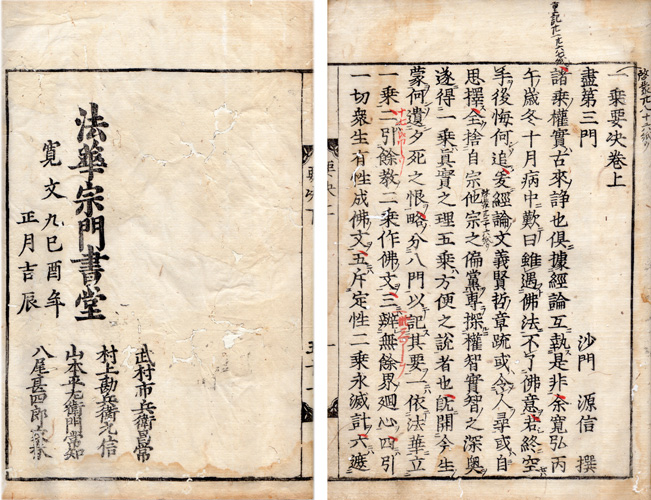 一乗要决卷上
盡第三門　沙門　源信　撰
諸乘權實古來諍也俱據經論互執是非余寬弘丙
午歲冬十月病中歎曰雖遇佛法不了佛意若終空
手後悔何追爰經論文義賢哲章䟽或令人尋或自
思擇全捨自宗他宗之偏黨專探權智實智之深奧
遂得一乘眞實之理五乘方便之說者也旣開今生
蒙何遺夕死之恨略分八門以記其要一依法華立
一乘二引餘教二乘作佛文三辨無餘界廻心四引
一切衆生有性成佛文五斥定性二乘永滅計六遮
要决
法華宗門書堂
寛文九巳酉年
正月吉辰
武村市兵衛昌常
村上勘兵衛元信
山本平左衛門常知
八尾甚四郎友春